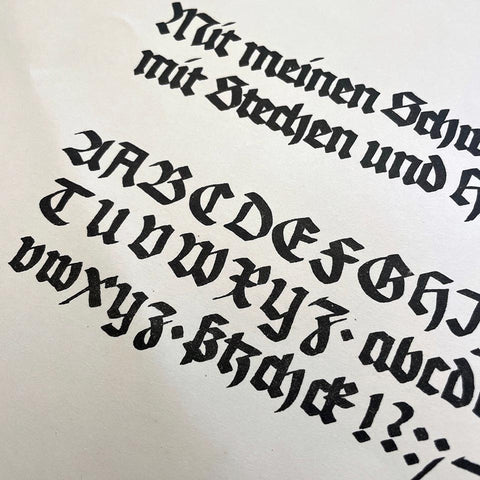 Mit meinen Schw
mit Stechen und H
AABCDEFGHI
TUVWXYZ·abcd
vwxyz·ßtzchck!?:;-